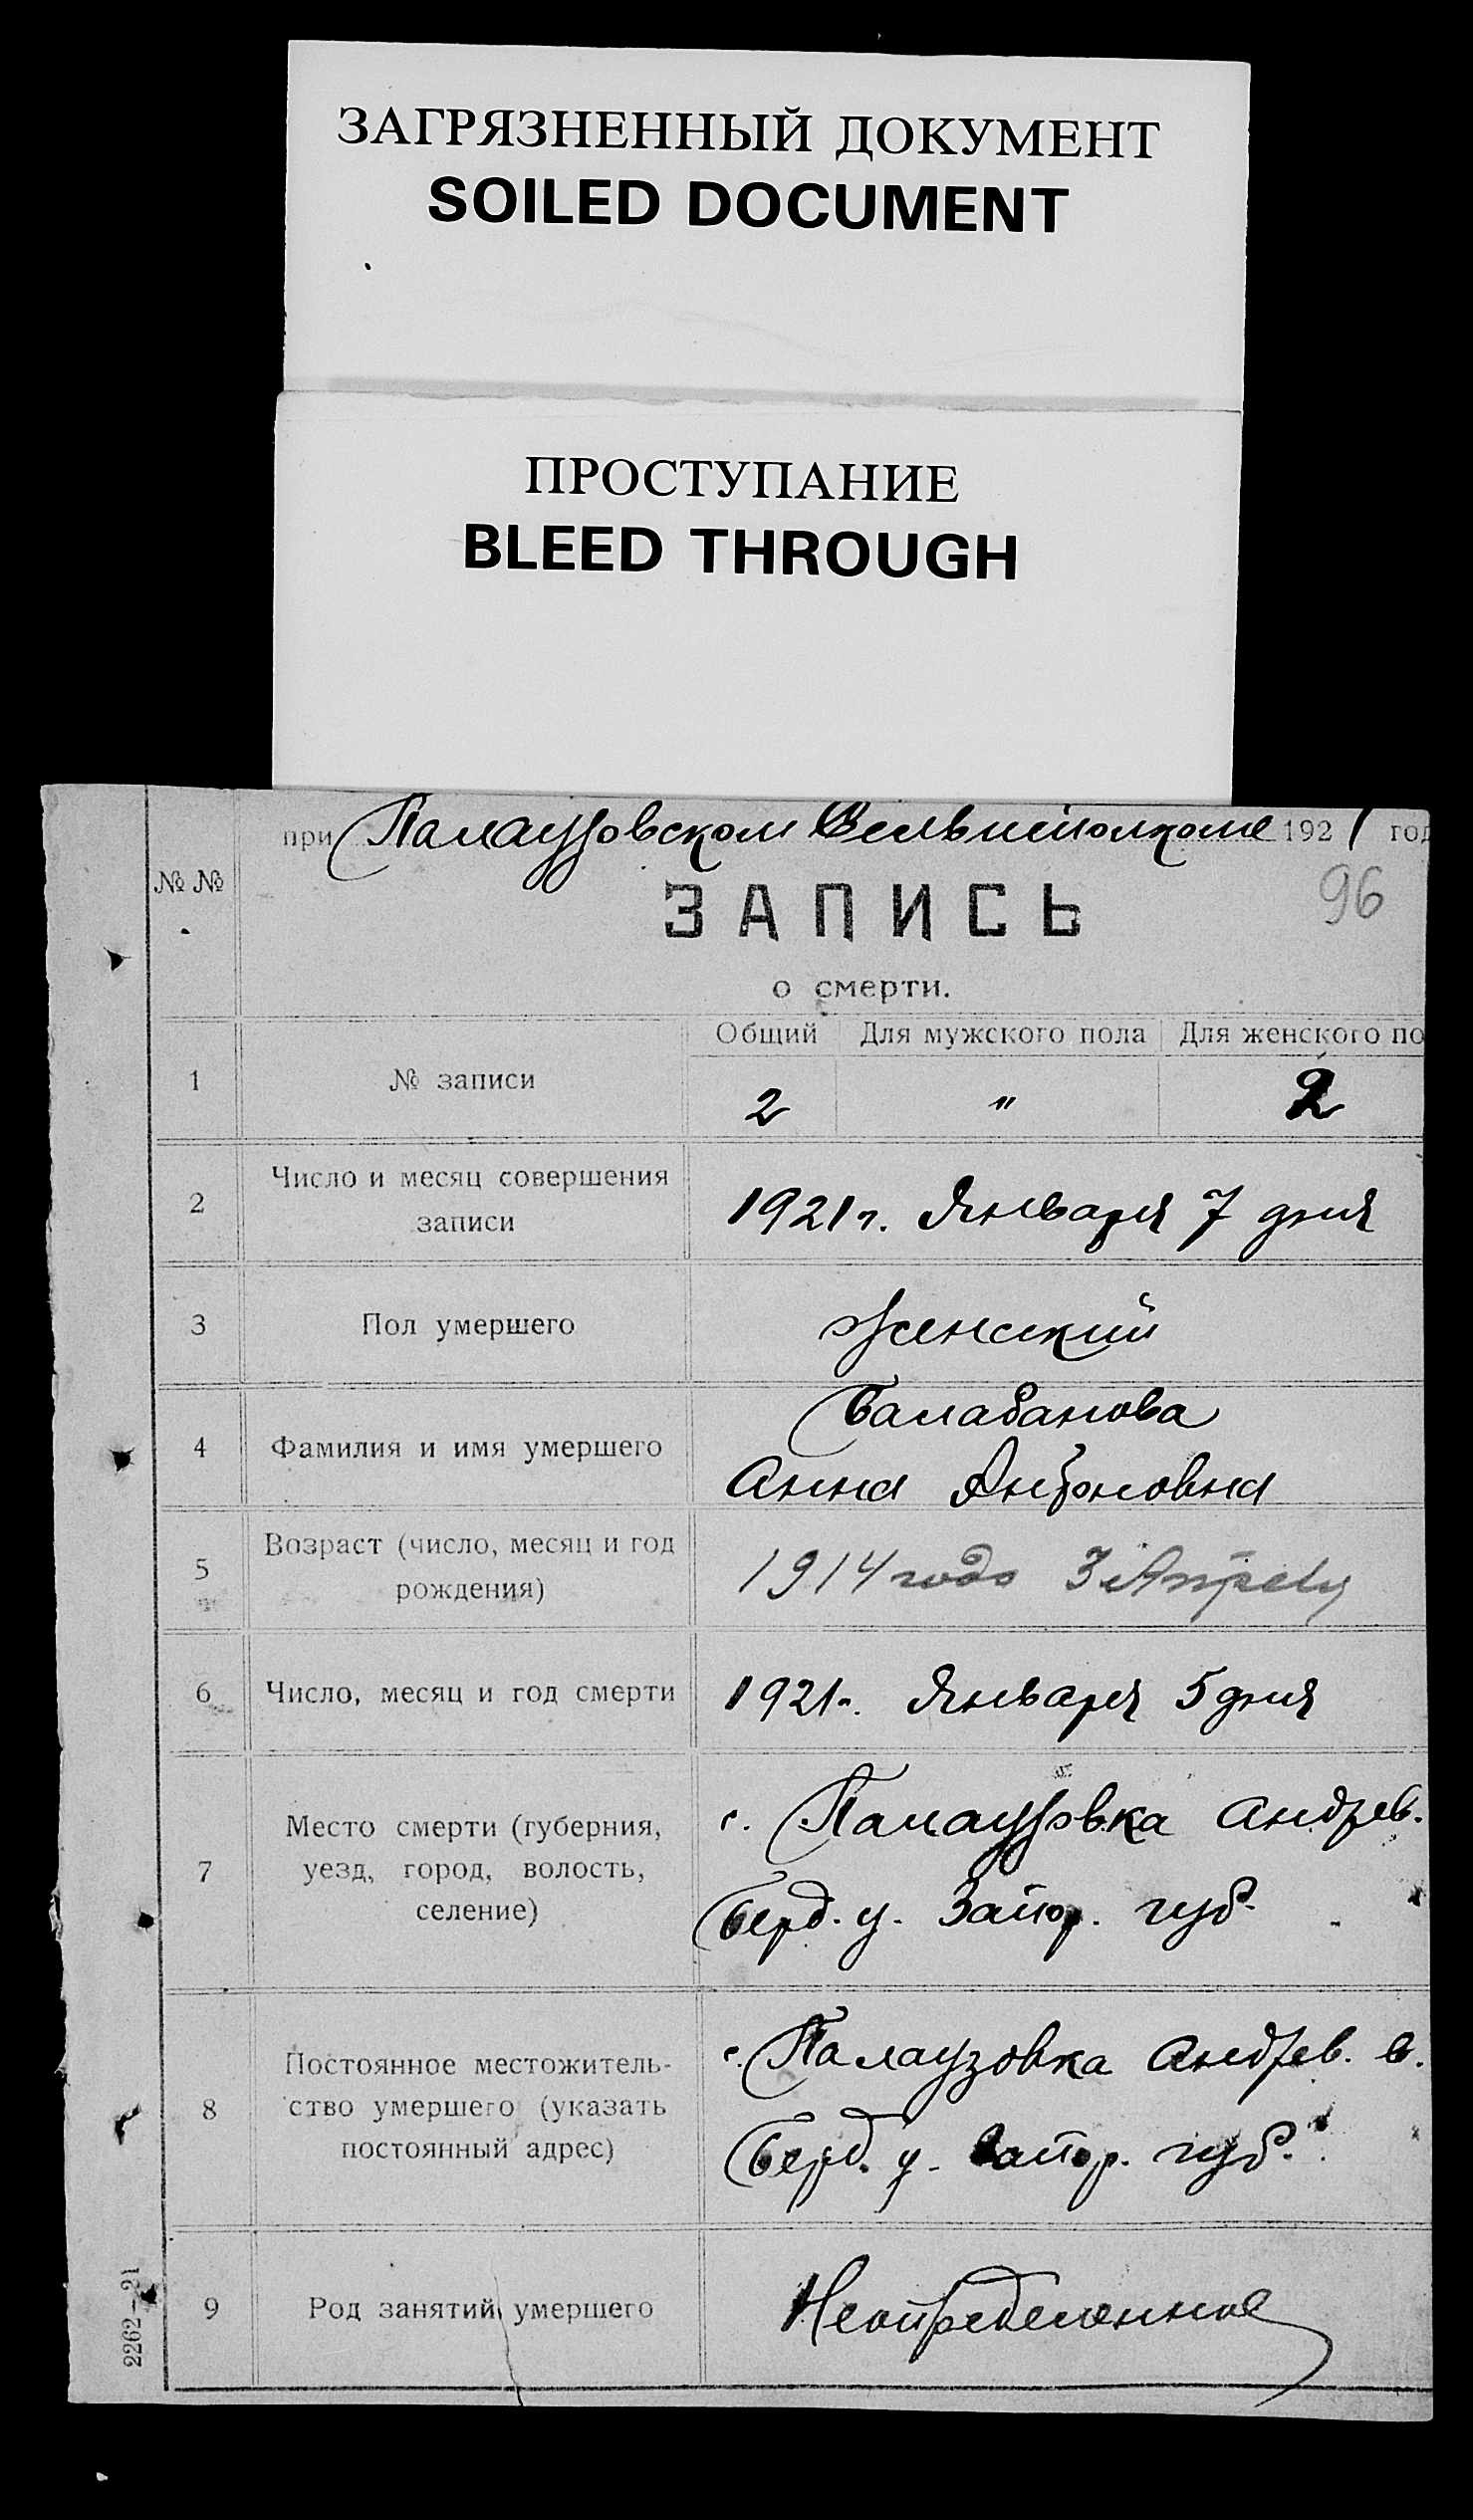 ЗАГРЯЗНЕННЫЙ ДОКУМЕНТ
SOILED DOCUMENT
ПРОСТУПАНИЕ
BLEED THROUGH
при Палаузовском Сельисполкоме 1921 год
№ №
96
ЗАПИСЬ
о смерти.
Общий Для мужского пола Для женского по
1 № записи 2 " 2
2 Число и месяц совершения
записи
1921 г. Января 7 дня
3 Пол умершего Женский
4 Фамилия и имя умершего
Балабанова
Анна Антоновна
5 Возраст (число, месяц и год
рождения)
1914 года 3 Апреля
6 Число, месяц и год смерти 1921 г. Января 5 дня
7 Место смерти (губерния,
уезд, город, волость,
селение)
с. Палаузовка Андрев.
Берд. у. Запор. губ.
8 Постоянное местожитель-
ство умершего (указать
постоянный адрес)
с. Палаузовка Андрев. в.
Берд. у. Запор. губ.
9 Род занятий умершего Неопределенное
2262—21